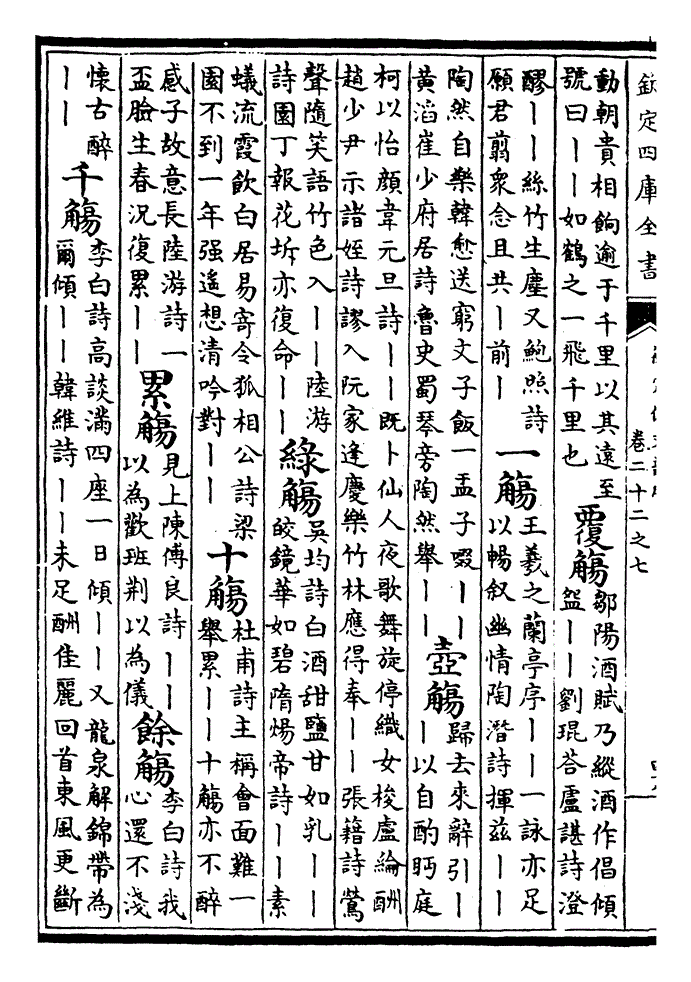 欽定四庫全書
卷二十二之七
動朝貴相餉逾于千里以其遠至
號曰丨丨如鶴之一飛千里也
覆觴
鄒陽酒賦乃縱酒作倡傾
盌丨丨劉琨荅盧諶詩澄
醪丨丨絲竹生塵又鮑照詩
願君翦衆念且共丨前丨
一觴
王羲之蘭亭序丨丨一詠亦足
以暢叙幽情陶潛詩揮兹丨丨
陶然自樂韓愈送窮文子飯一盂子啜丨丨
黄滔崔少府居詩魯史蜀琴旁陶然舉丨丨
壺觴
歸去來辭引丨
丨以自酌眄庭
柯以怡顔韋元旦詩丨丨既卜仙人夜歌舞旋停織女梭盧綸酬
趙少尹示諸姪詩謬入阮家逢慶樂竹林應得奉丨丨張籍詩鶯
聲隨笑語竹色入丨丨陸游
詩園丁報花坼亦復命丨丨
綠觴
吳均詩白酒甜鹽甘如乳丨丨
皎鏡華如碧隋煬帝詩丨丨素
蟻流霞飲白居易寄令狐相公詩梁
園不到一年强遥想清吟對丨丨
十觴
杜甫詩主稱會面難一
舉累丨丨十觴亦不醉
感子故意長陸游詩一
盃臉生春况復累丨丨
累觴
見上陳傅良詩丨丨
以為歡班荆以為儀
餘觴
李白詩我
心還不淺
懷古醉
丨丨
千觴
李白詩高談滿四座一日傾丨丨又龍泉解錦帶為
爾傾丨丨韓維詩丨丨未足酬佳麗回首東風更斷